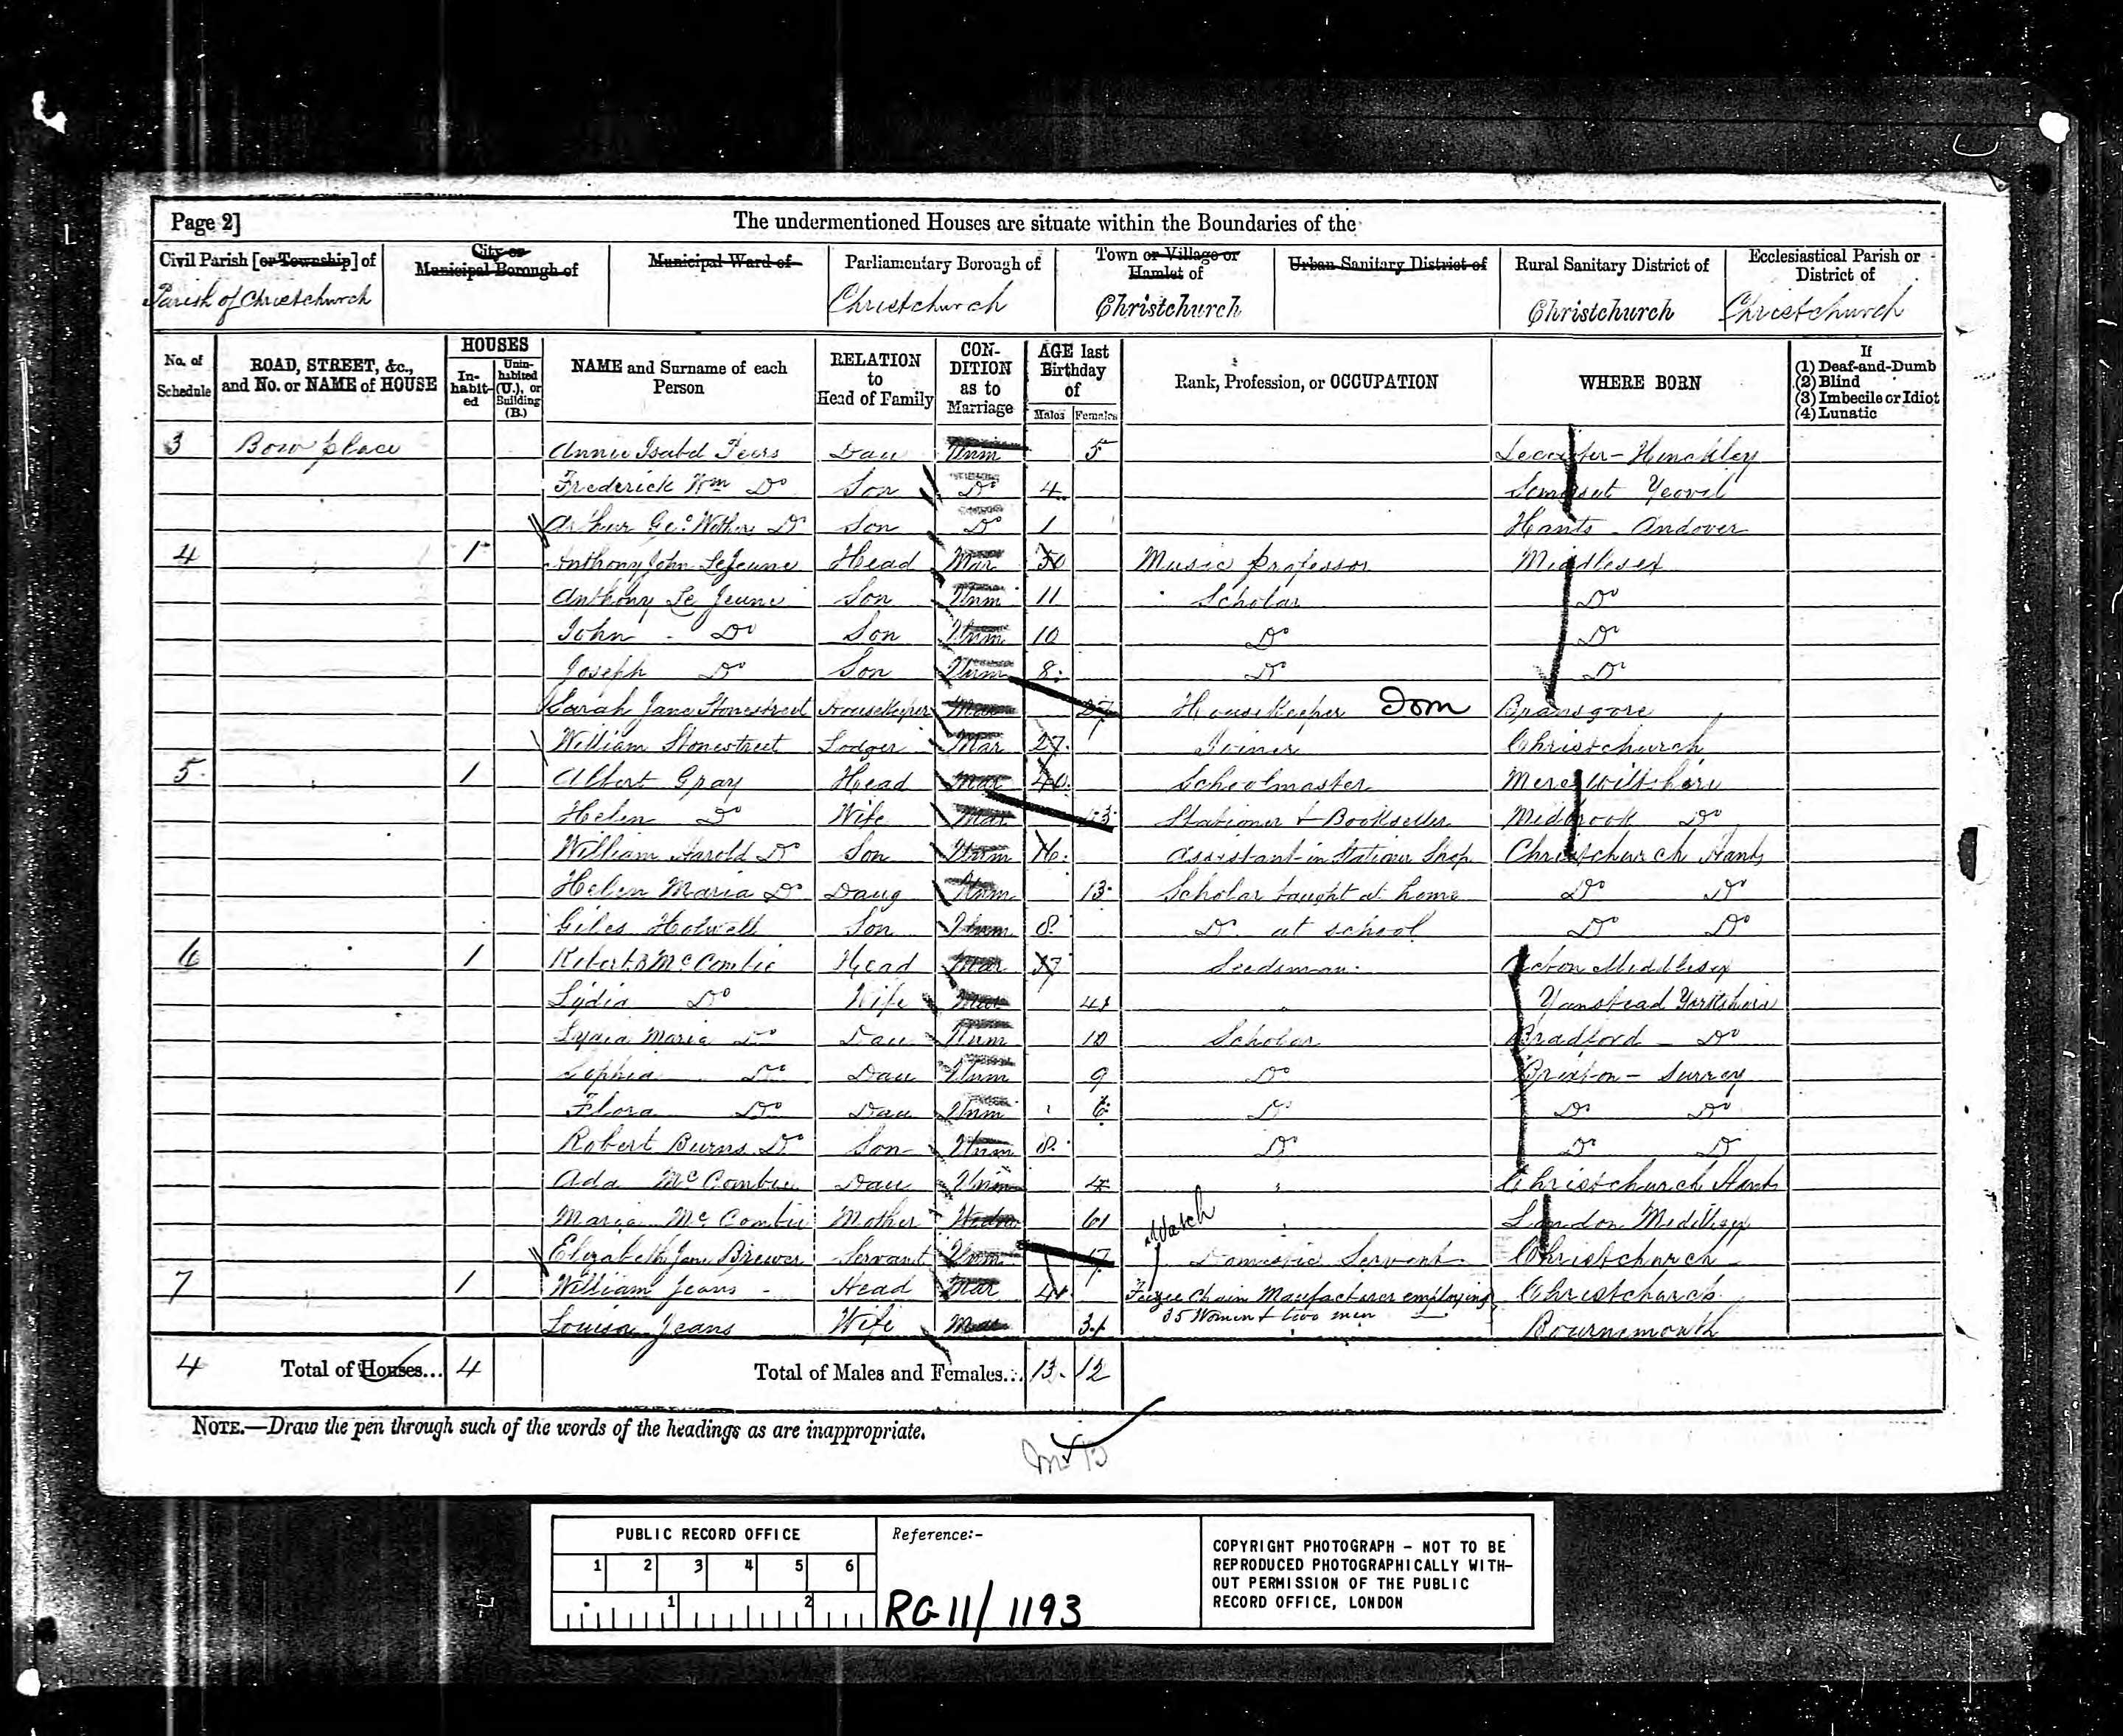 Page 2] The undermentioned Houses are situate within the Boundaries of the
Civil Parish [or Township] of City or Municipal Borough of Municipal Ward of Parliamentary Borough of Town or Village or Hamlet of Urban Sanitary District of Rural Sanitary District of Ecclesiastical Parish or District of
Parish of Christchurch Christchurch Christchurch Christchurch Christchurch
No. of Schedule ROAD, STREET, &c., and No. or NAME of HOUSE HOUSES Inhabited Uninhabited (U.), or Building (B.) NAME and Surname of each Person RELATION to Head of Family CONDITION as to Marriage AGE last Birthday of Males Females Rank, Profession, or OCCUPATION WHERE BORN If (1) Deaf-and-Dumb (2) Blind (3) Imbecile or Idiot (4) Lunatic
3 Bow place Annie Isabel Peers Dau Unm 5 Leicester - Hinckley
Frederick Wm Do Son Do 4 Somerset Yeovil
Arthur Geo. Do Son Do 1 Hants - Andover
4 1 Anthony John LeJeune Head Mar 50 Music professor Middlesex
Anthony Le Jeune Son Unm 11 Scholar Do
John - Do Son Unm 10 Do Do
Joseph Do Son Unm 8 Do Do
Sarah Jane Stonestreet Housekeeper Mar 27 Housekeeper Dom Bransgore
William Stonestreet Lodger Mar 27 Joiner Christchurch
5 1 Albert Gray Head Mar 40 Schoolmaster Mere Wiltshire
Helen Do Wife Mar Stationer & Bookseller Do
William Harold Do Son Unm 16 Assistant in Stationer Shop Christchurch Hants
Helen Maria Do Daug Unm 13 Scholar taught at home Do Do
Giles Holwell Son Unm 8 Do at school Do Do
6 1 Robert B McCombie Head Mar 37 Seedsman Acton Middlesex
Lydia Do Wife Mar 41 Yanstead Yorkshire
Lydia Maria Do Dau Unm 10 Scholar Bradford - Do
Sophia Do Dau Unm 9 Do Brixton - Surrey
Flora Do Dau Unm 6 Do Do Do
Robert Burns Do Son Unm 8 Do Do Do
Ada McCombie Dau Unm 4 Christchurch Hants
Maria McCombie Mother Widow 61 London Middlesex
Elizabeth Jane Brewer Servant Unm 17 Domestic Servant Christchurch
Watch
7 1 William Jeans Head Mar 41 Fuzee Chain Manufacturer employing Christchurch
35 Women & two men
Louisa Jeans Wife Mar 31 Bournemouth
4 Total of Houses... 4 Total of Males and Females... 13 12
NOTE.—Draw the pen through such of the words of the headings as are inappropriate.
PUBLIC RECORD OFFICE Reference:-
1 2 3 4 5 6
1 2
RG 11/1193
COPYRIGHT PHOTOGRAPH - NOT TO BE
REPRODUCED PHOTOGRAPHICALLY WITH-
OUT PERMISSION OF THE PUBLIC
RECORD OFFICE, LONDON